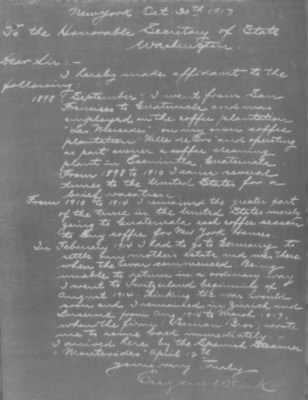 New York Oct. 30th 1917
To the Honorable Secretary of State
Washington.
Dear Sir:-
I hereby make affidavit to the
following:
1898 September, I went from San
Francisco to Guatemala and was
employed on the coffee plantation
"Las Mercedes", on my own coffee
plantation and operating
as part owner a coffee cleaning
plant in Escuintla, Guatemala.
From 1898 to 1910 I came several
times to the United States for a
brief vacation.
From 1910 to 1914 I remained the greater part
of the time in the United States merely
going to Guatemala each coffee season
to buy coffee for New York Houses.
In February 1914 I had to go to Germany to
settle my mother's estate and was there
when the war commenced. Being
unable to return in a ordinary way
I went to Switzerland beginning of
August 1914, thinking the war would
soon end I remained in Zurich and
Lucerne from Aug. 1914 to March 1917,
when the firm of Bros. wrote
me to come back immediately.
I arrived here by the Spanish Steamer
"Montevideo" April 12th
Yours very truly